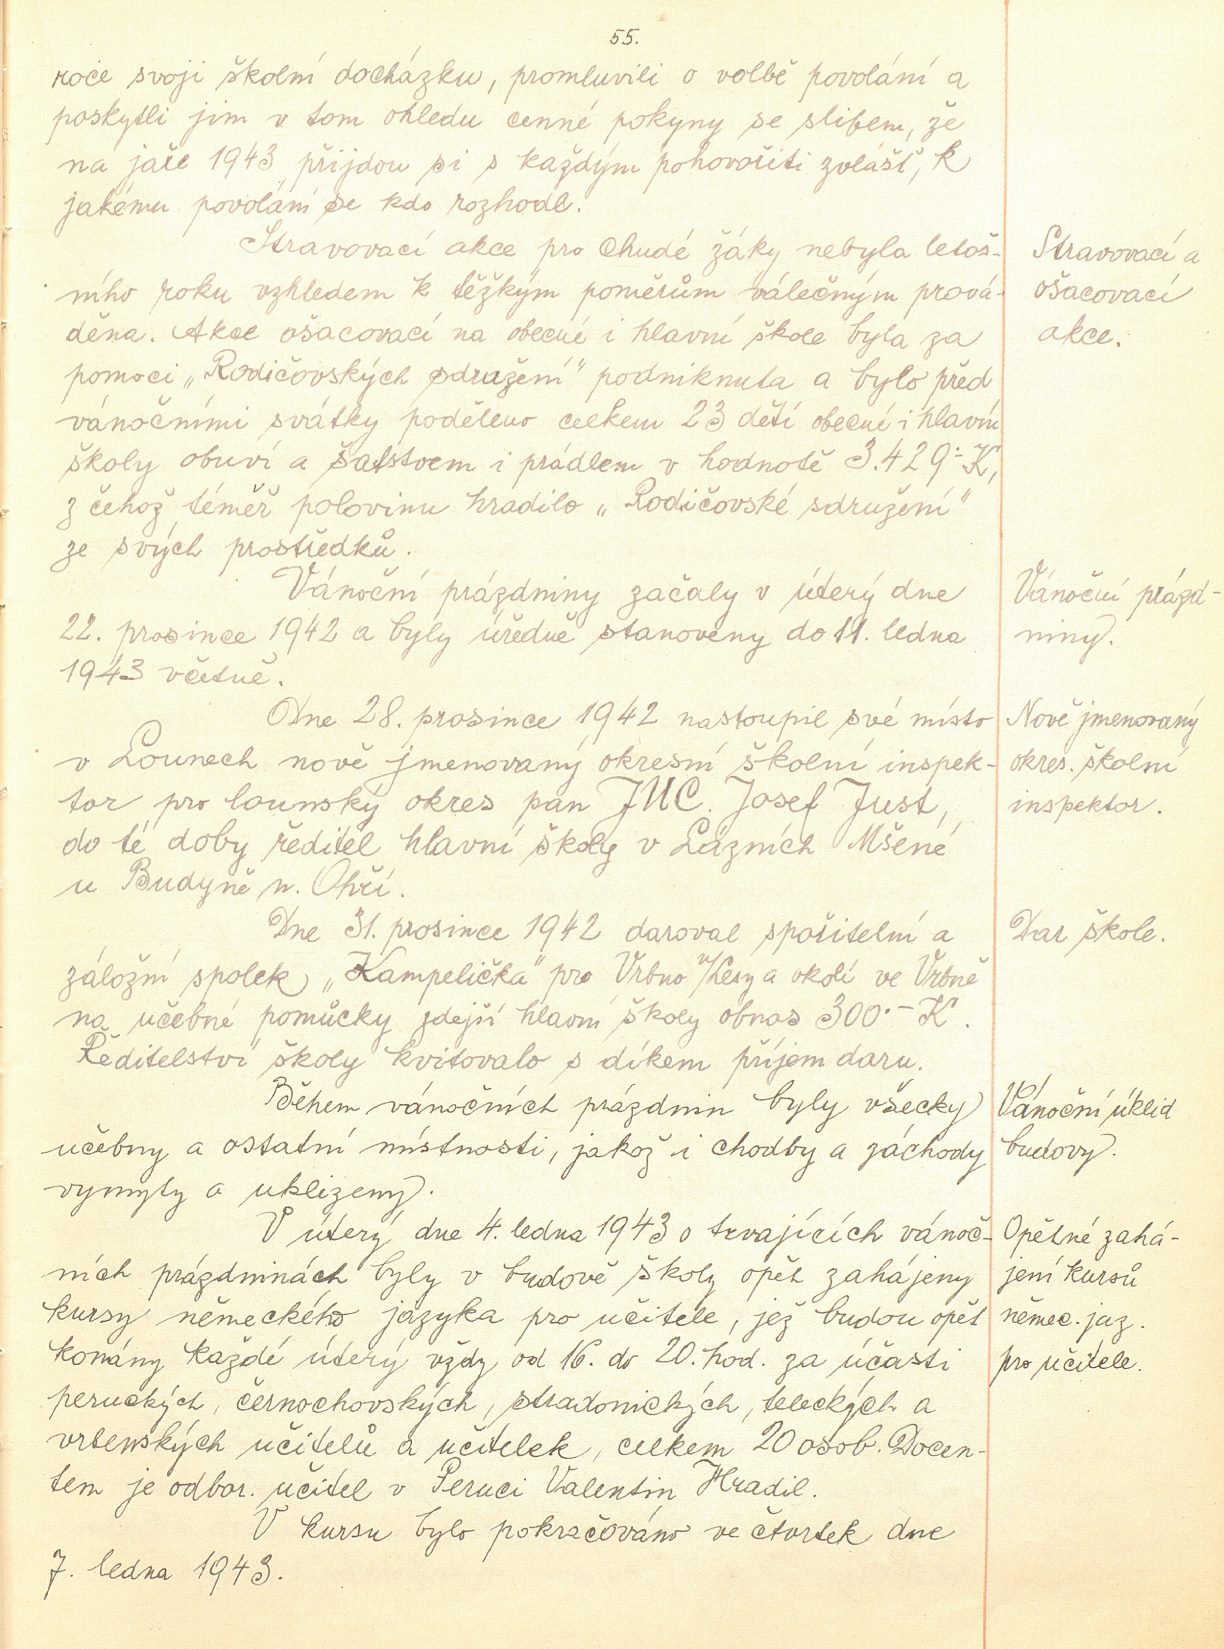 55.
roce svoji školní docházku, promluvili o volbě povolání a
poskytli jim v tom ohledu cenné pokyny se slibem, že
na jaře 1943 přijdou si s každým pohovořiti zvlášť, k
jakému povolání se kdo rozhodl.
Stravovací akce pro chudé žáky nebyla letoš-
ního roku vzhledem k těžkým poměrům válečným prová-
děna. Akce ošacovací na obecné i hlavní škole byla za
pomoci „Rodičovských sdružení" podniknuta a bylo před
vánočními svátky poděleno celkem 23 dětí obecné i hlavní
školy obuví a šatstvem i prádlem v hodnotě 3.429·- K,
z čehož téměř polovinu hradilo „Rodičovské sdružení"
ze svých prostředků.
Stravovací a
ošacovací
akce.
Vánoční prázdniny začaly v úterý dne
22. prosince 1942 a byly úředně stanoveny do 11. ledna
1943 včetně.
Vánoční prázd-
niny.
Dne 28. prosince 1942 nastoupil své místo
v Lounech nově jmenovaný okresní školní inspek-
tor pro lounský okres pan JUC. Josef Just,
do té doby ředitel hlavní školy v Lázních Mšené
u Budyně n. Ohří.
Nově jmenovaný
okres. školní
inspektor.
Dne 31. prosince 1942 daroval spořitelní a
záložní spolek „Kampelička" pro Vrbno n/Lesy a okolí ve Vrbně
na učebné pomůcky zdejší hlavní školy obnos 300·— K.
Ředitelství školy kvitovalo s díkem příjem daru.
Dar škole.
Během vánočních prázdnin byly všecky
učebny a ostatní místnosti, jakož i chodby a záchody
vymyty a uklizeny.
Vánoční úklid
budovy.
V úterý dne 4. ledna 1943 o trvajících vánoč-
ních prázdninách byly v budově školy opět zahájeny
kursy německého jazyka pro učitele, jež budou opět
konány každé úterý vždy od 16. do 20. hod. za účasti
peruckých, černochovských, stradonických, teleckých a
vrbenských učitelů a učitelek, celkem 20 osob. Docen-
tem je odbor. učitel v Peruci Valentin Hradil.
Opětné zahá-
jení kursů
němec. jaz.
pro učitele.
V kursu bylo pokračováno ve čtvrtek dne
7. ledna 1943.